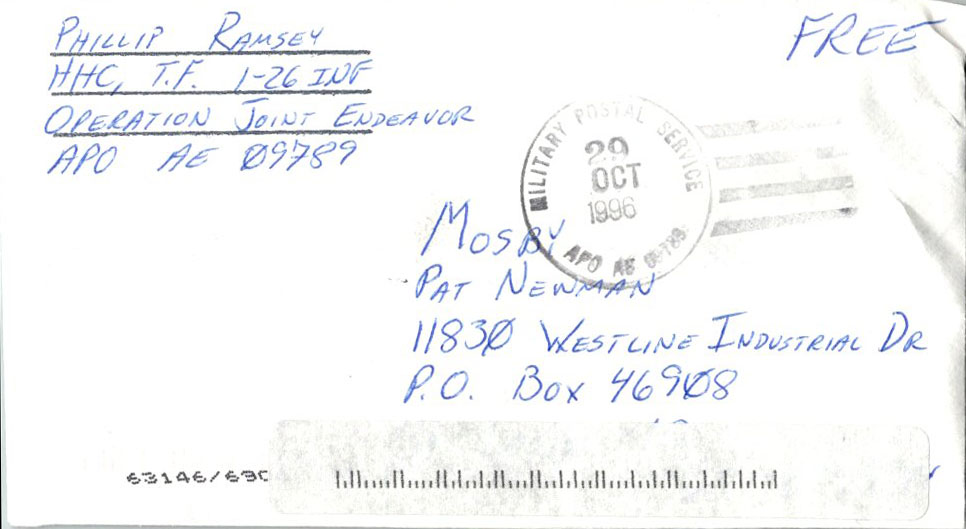 PHILLIP RAMSEY
HHC, T.F. 1-26 INF
OPERATION JOINT ENDEAVOR
APO AE 09789
FREE
MILITARY POSTAL SERVICE
29
OCT
1996
APO AE 09789
MOSBY
PAT NEWMAN
11830 WESTLINE INDUSTRIAL DR
P.O. BOX 46908
63146/690